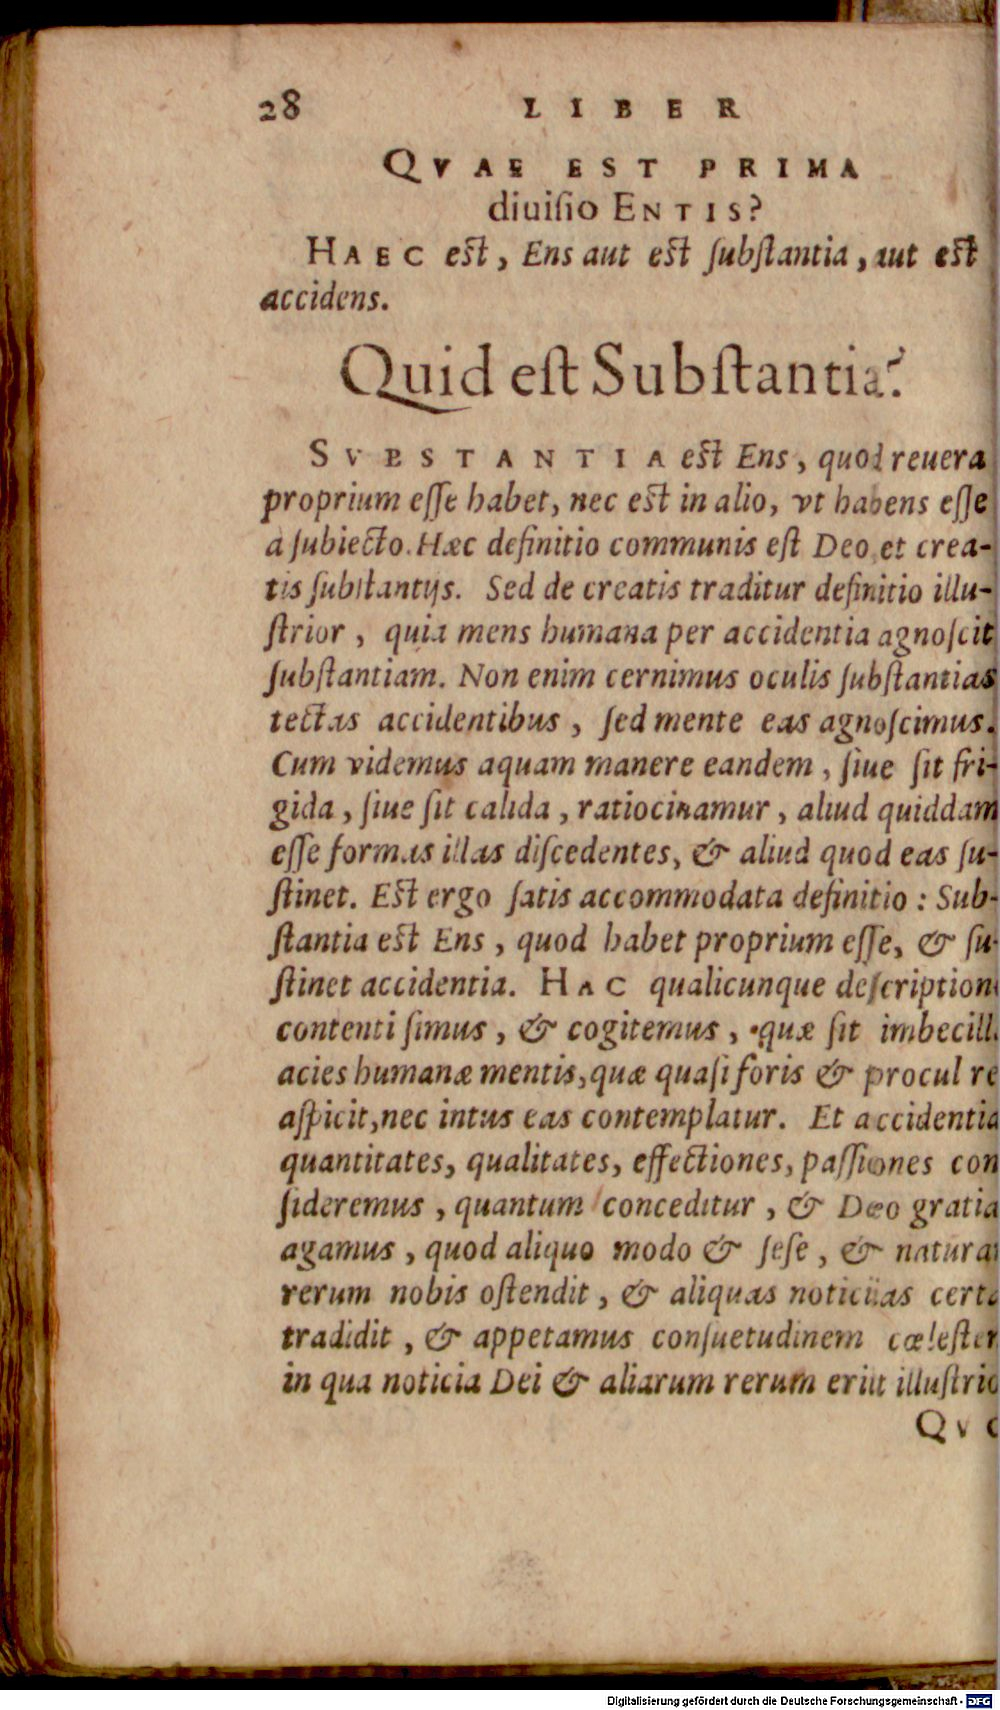 28 LIBER
QVAE EST PRIMA
diuiſio ENTIS?
HAEC eſt, Ens aut eſt ſubſtantia, aut eſt
accidens.
Quid eſt Subſtantia?
SVBSTANTIA eſt Ens, quod reuera
proprium eſſe habet, nec eſt in alio, vt habens eſſe
à ſubiecto. Hæc definitio communis eſt Deo et crea-
tis ſubſtantijs. Sed de creatis traditur definitio illu-
ſtrior, quia mens humana per accidentia agnoſcit
ſubſtantiam. Non enim cernimus oculis ſubſtantias
tectas accidentibus, ſed mente eas agnoſcimus.
Cum videmus aquam manere eandem, ſiue ſit fri-
gida, ſiue ſit calida, ratiocinamur, aliud quiddam
eſſe formas illas diſcedentes, & aliud quod eas ſu-
ſtinet. Eſt ergo ſatis accommodata definitio: Sub-
ſtantia eſt Ens, quod habet proprium eſſe, & ſu-
ſtinet accidentia. HAC qualicunque deſcription
contenti ſimus, & cogitemus, quæ ſit imbecill
acies humanæ mentis, quæ quaſi foris & procul re
aſpicit, nec intus eas contemplatur. Et accidentia
quantitates, qualitates, effectiones, paſſiones con
ſideremus, quantum conceditur, & Deo gratia
agamus, quod aliquo modo & ſeſe, & natura
rerum nobis oſtendit, & aliquas noticias cert
tradidit, & appetamus conſuetudinem cœleſtem
in qua noticia Dei & aliarum rerum erit illuſtrio
QVO
Digitalisierung gefördert durch die Deutsche Forschungsgemeinschaft - DFG